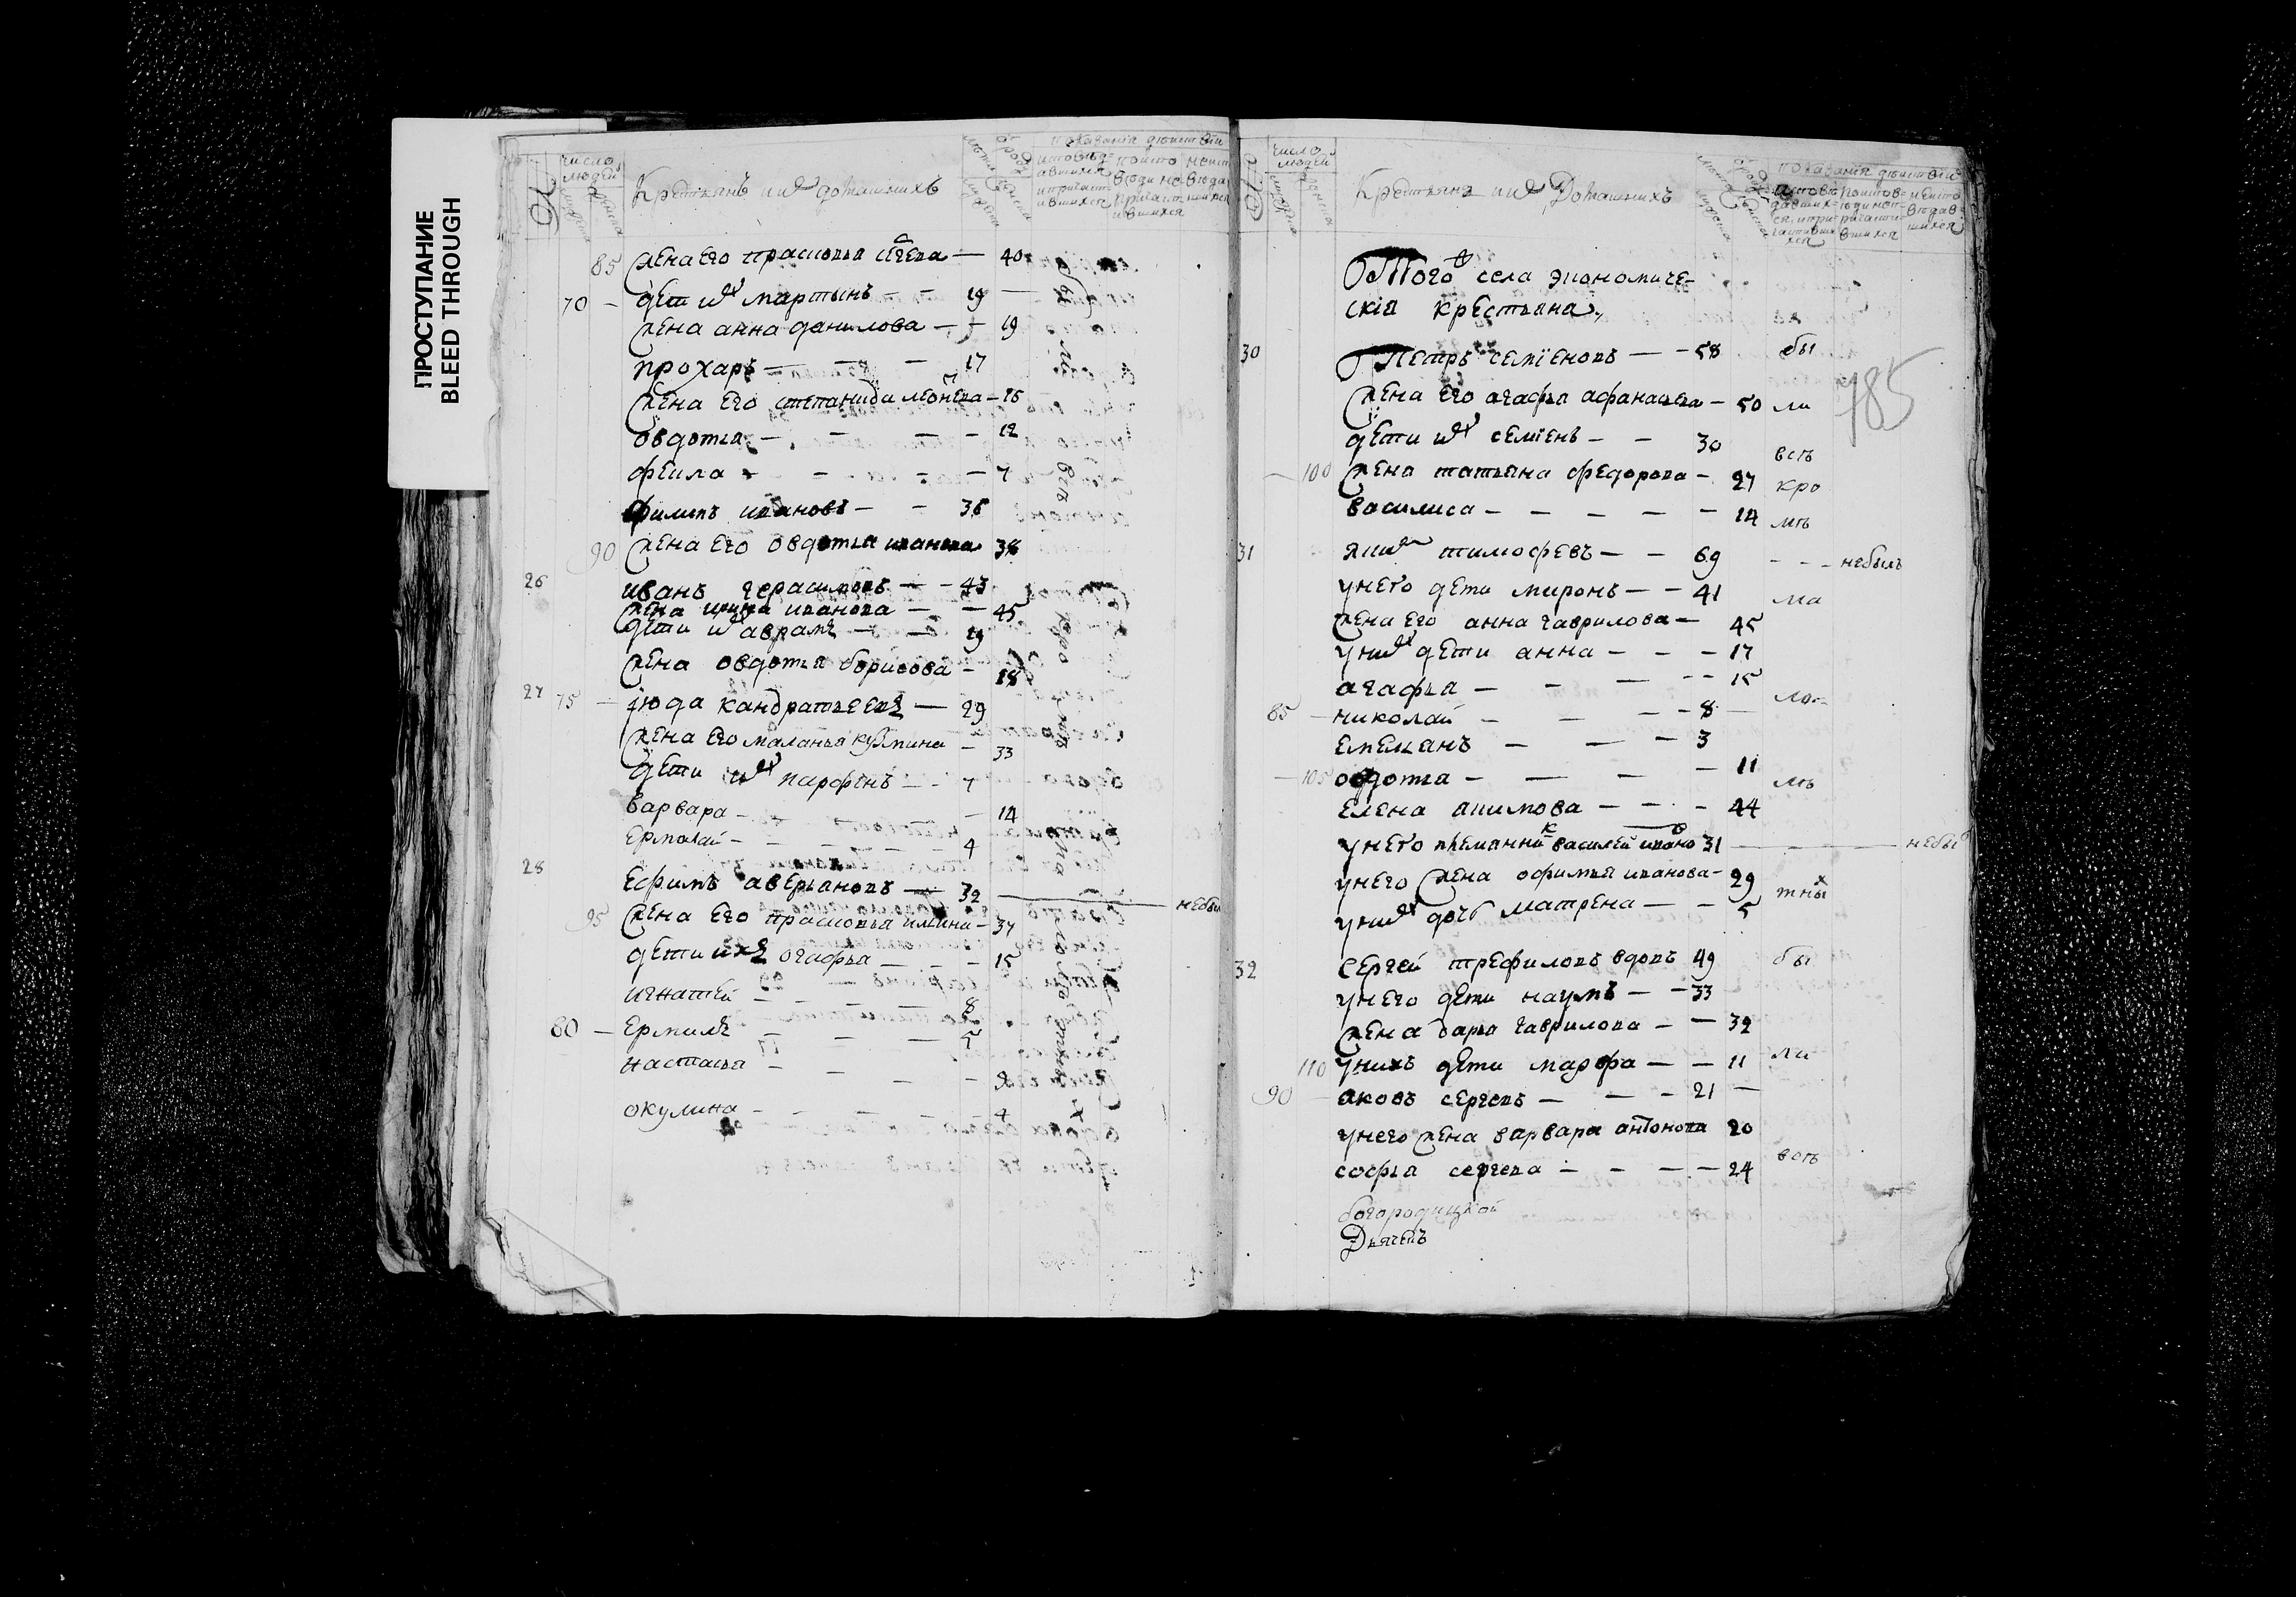 ПРОСТУПАНИЕ
BLEED THROUGH
число людей
85 жена его прасковья
70 — дети их мартынъ — — 19
жена анна данилова — — 19
прохаръ — — — 17
жена его степанида — 16
овдотья — — — — 12
феила — — — — 7
филипъ ивановъ — — 36
90 жена его овдотья иванова 38
26 иванъ герасимовъ — — 43
жена ирина иванова — — 45
дети их аврамъ — — 19
жена овдотья борисова — 18
27 75 — июда кандратьевъ — 29
жена его маланья кузмина — 33
дети их парфенъ — — 7
варвара — — 14
ермолай — — — — — 4
28 ефимъ аверьяновъ — 32 — небы
95 жена его прасковья ильина — 37
дети ихъ огафья — — — 15
игнатей — — — — 8
80 — ермилъ — — — 5
настасья — — — —
окулина — — — — — 4
число людей
Того села экономиче-
скія крестьяна
30 Петръ семіеновъ — — 58 бы
жена его агафья афанасьева — 50 ли
дети их семіенъ — — 30 всѣ
— 100 жена татьяна федорова — 27 кро
василиса — — — — — 14 мѣ
31 тимофевъ — — 69 - - - небылъ
у него дети миронъ — — 41
жена его анна гаврилова — 45
у них дети анна — — — 17
агафья — — — — 15
85 — николай — — — 8 —
емельанъ — — — 3
— 105 овдотья — — — — 11
елена акимова — — — 44
у него племанникъ василей ивано 31 — небы
у него жена офимья иванова — 29 тных
у них дочь матрена — — 5
32 сергей трефиловъ вдовъ 49 бы
у него дети наумъ — — 33
жена дарья гаврилова — — 32
110 у нихъ дети марфа — — 11 ли
90 — аковъ сергевъ — — — 21 —
у него жена варвара антонова 20
софья сергева — — — — 24 всѣ
богородицкой
Дьячекъ
185